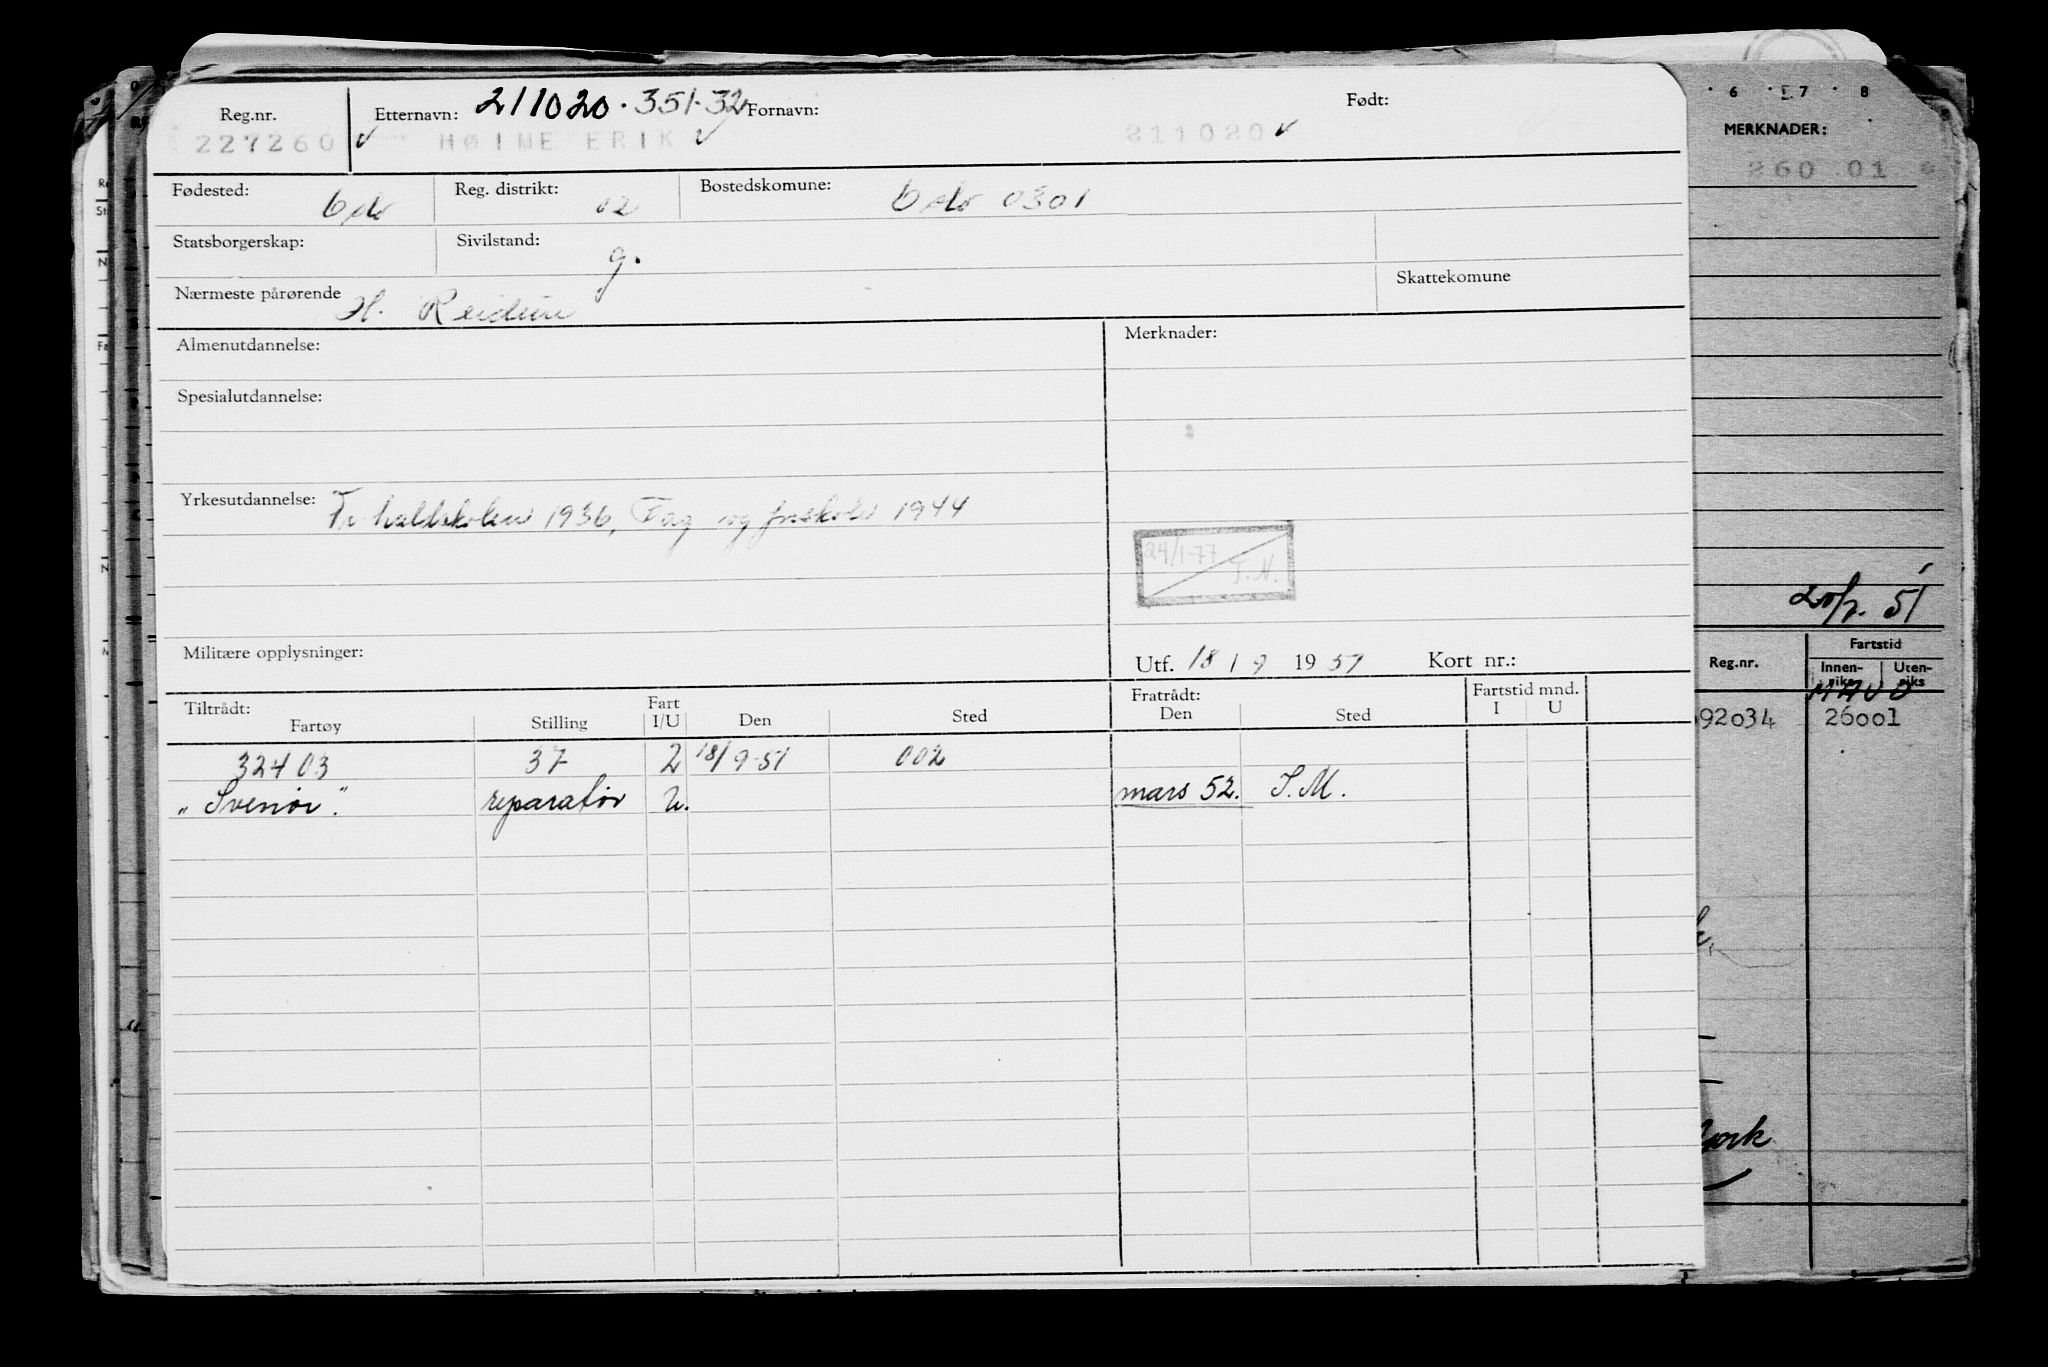 Reg.nr. Etternavn: 211020.351.32 Fornavn: Født:
227260 HØINE ERIK 211020
Fødested: Oslo Reg. distrikt: 02 Bostedskomune: Oslo 0301
Statsborgerskap: Sivilstand: g.
Nærmeste pårørende H. Reidun Skattekomune
Almenutdannelse: Merknader:
Spesialutdannelse:
Yrkesutdannelse: 1936, Fag og 1944
24/1-77
T.N.
Militære opplysninger: Utf. 18 / 9 19 51 Kort nr.:
Tiltrådt: Fart Fratrådt: Fartstid mnd.
Fartøy Stilling I/U Den Sted Den Sted I U
32403 37 2 18/9-51 002
"Svenør". reparatør u. mars 52. S.M.
6 7 8
MERKNADER:
260 01
51
Reg.nr. Fartstid
Innen- Uten-
riks riks
92034 26001